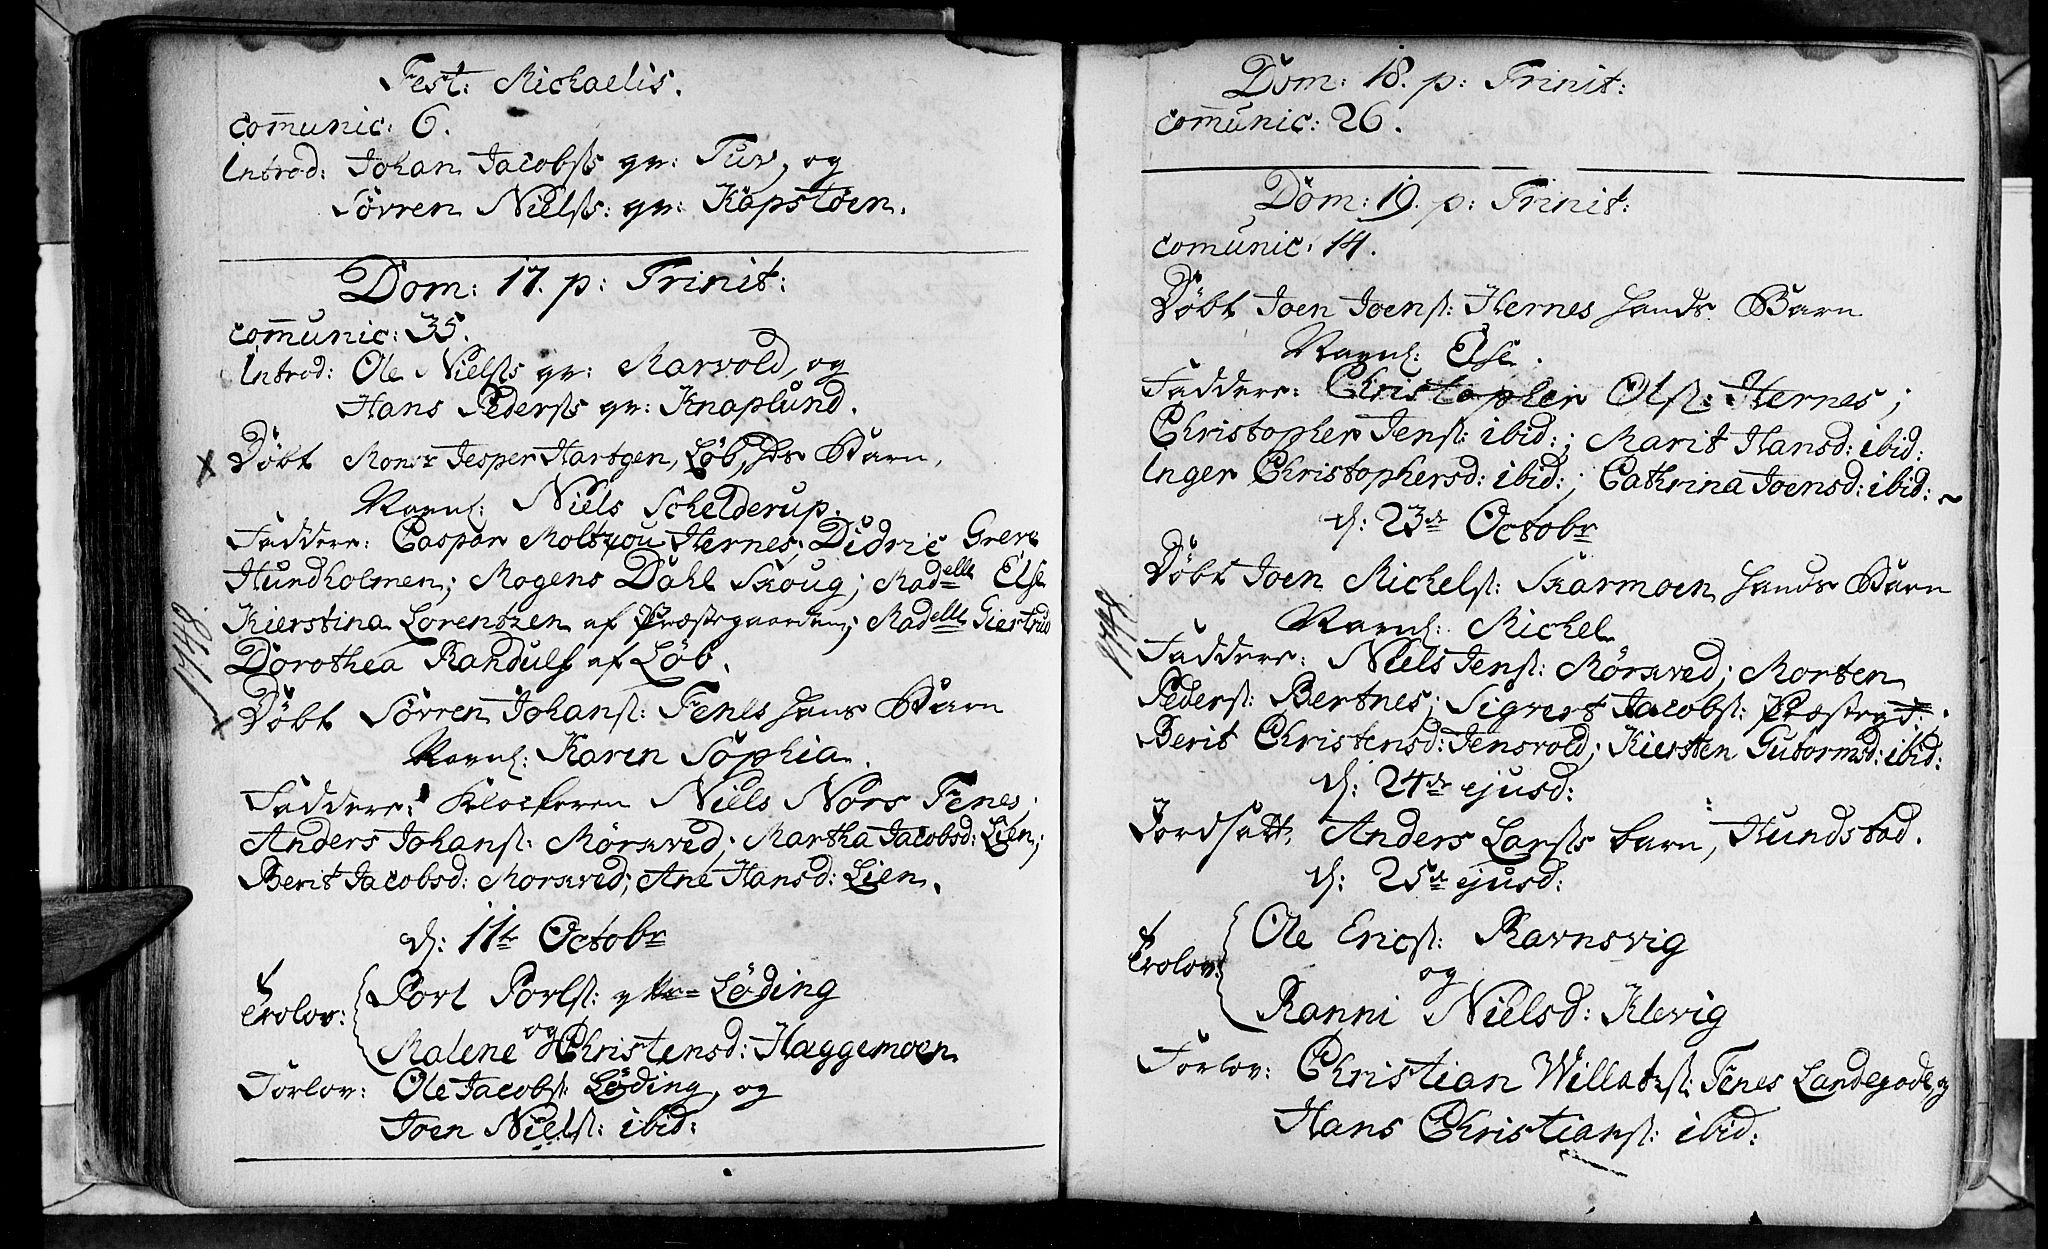 Fest: Michaelis.
com̄unic: 6.
Introd: Johan Jacobss qv: Tuv, og
Sörren Nielss: qv: Kopstöen.
Dom: 17. p: Trinit:
com̄unic: 35.
Introd: Ole Nielss qv: Marvold, og
Hans Pederss qv: Knaplund.
x Döbt Monsr Jesper Hartgen, Löb, hs Barn,
Navnl: Niels Schelderup.
Faddere: Caspar Moltzou Hernes; Didric Greve
Hundholmen; Mogens Dahl Skoug; Madelle Else
Kierstina Lorentzen af Præstegaarden; Madelle Giertrud
Dorothea Randulf af Löb.
1748.
x Döbt Sörren Johans: Fenes hans Barn
Navnl: Karen Sophia.
Faddere: Klockeren Niels Nors Fenes;
Anders Johans: Mörkved; Martha Jacobsd: Lien;
Berit Jacobsd: Morkved; Ane Hansd: Lien.
d: 11te Octobr
Trolov: Porl Porls: Löding
og
Malene Christensd: Hæggemoen
Forlov: Ole Jacobs: Löding, og
Joen Niels: ibid:
Dom: 18. p: Trinit:
com̄unic: 26.
Dom: 19. p: Trinit:
comunic: 14.
Döbt Joen Joens: Hernes hands Barn
Navnl: Else.
Faddere: Christopher Ols: Hernes;
Christopher Jens: ibid:; Marit Hansd: ibid:
Inger Christophersd: ibid:; Cathrina Joensd: ibid:
d: 23de Octobr
Döbt Joen Michels: Skarmoen hands Barn
Navnl: Michel
1748.
Faddere: Niels Jens: Mörkved; Morten
Peders: Bertnes; Sigvert Jacobs: Præstegd:
Berit Christensd: Jensvold; Kiersten Gutormsd: ibid:
d: 24de ejusd:
Jordsatt, Anders Larss barn, Hundstad.
d: 25de ejusd:
Trolov: Ole Erics: Ravnsvig
og
Ranni Nielsd: Klevig
Forlov: Christian Willats: Fenes Landegode, og
Hans Christians: ibid: